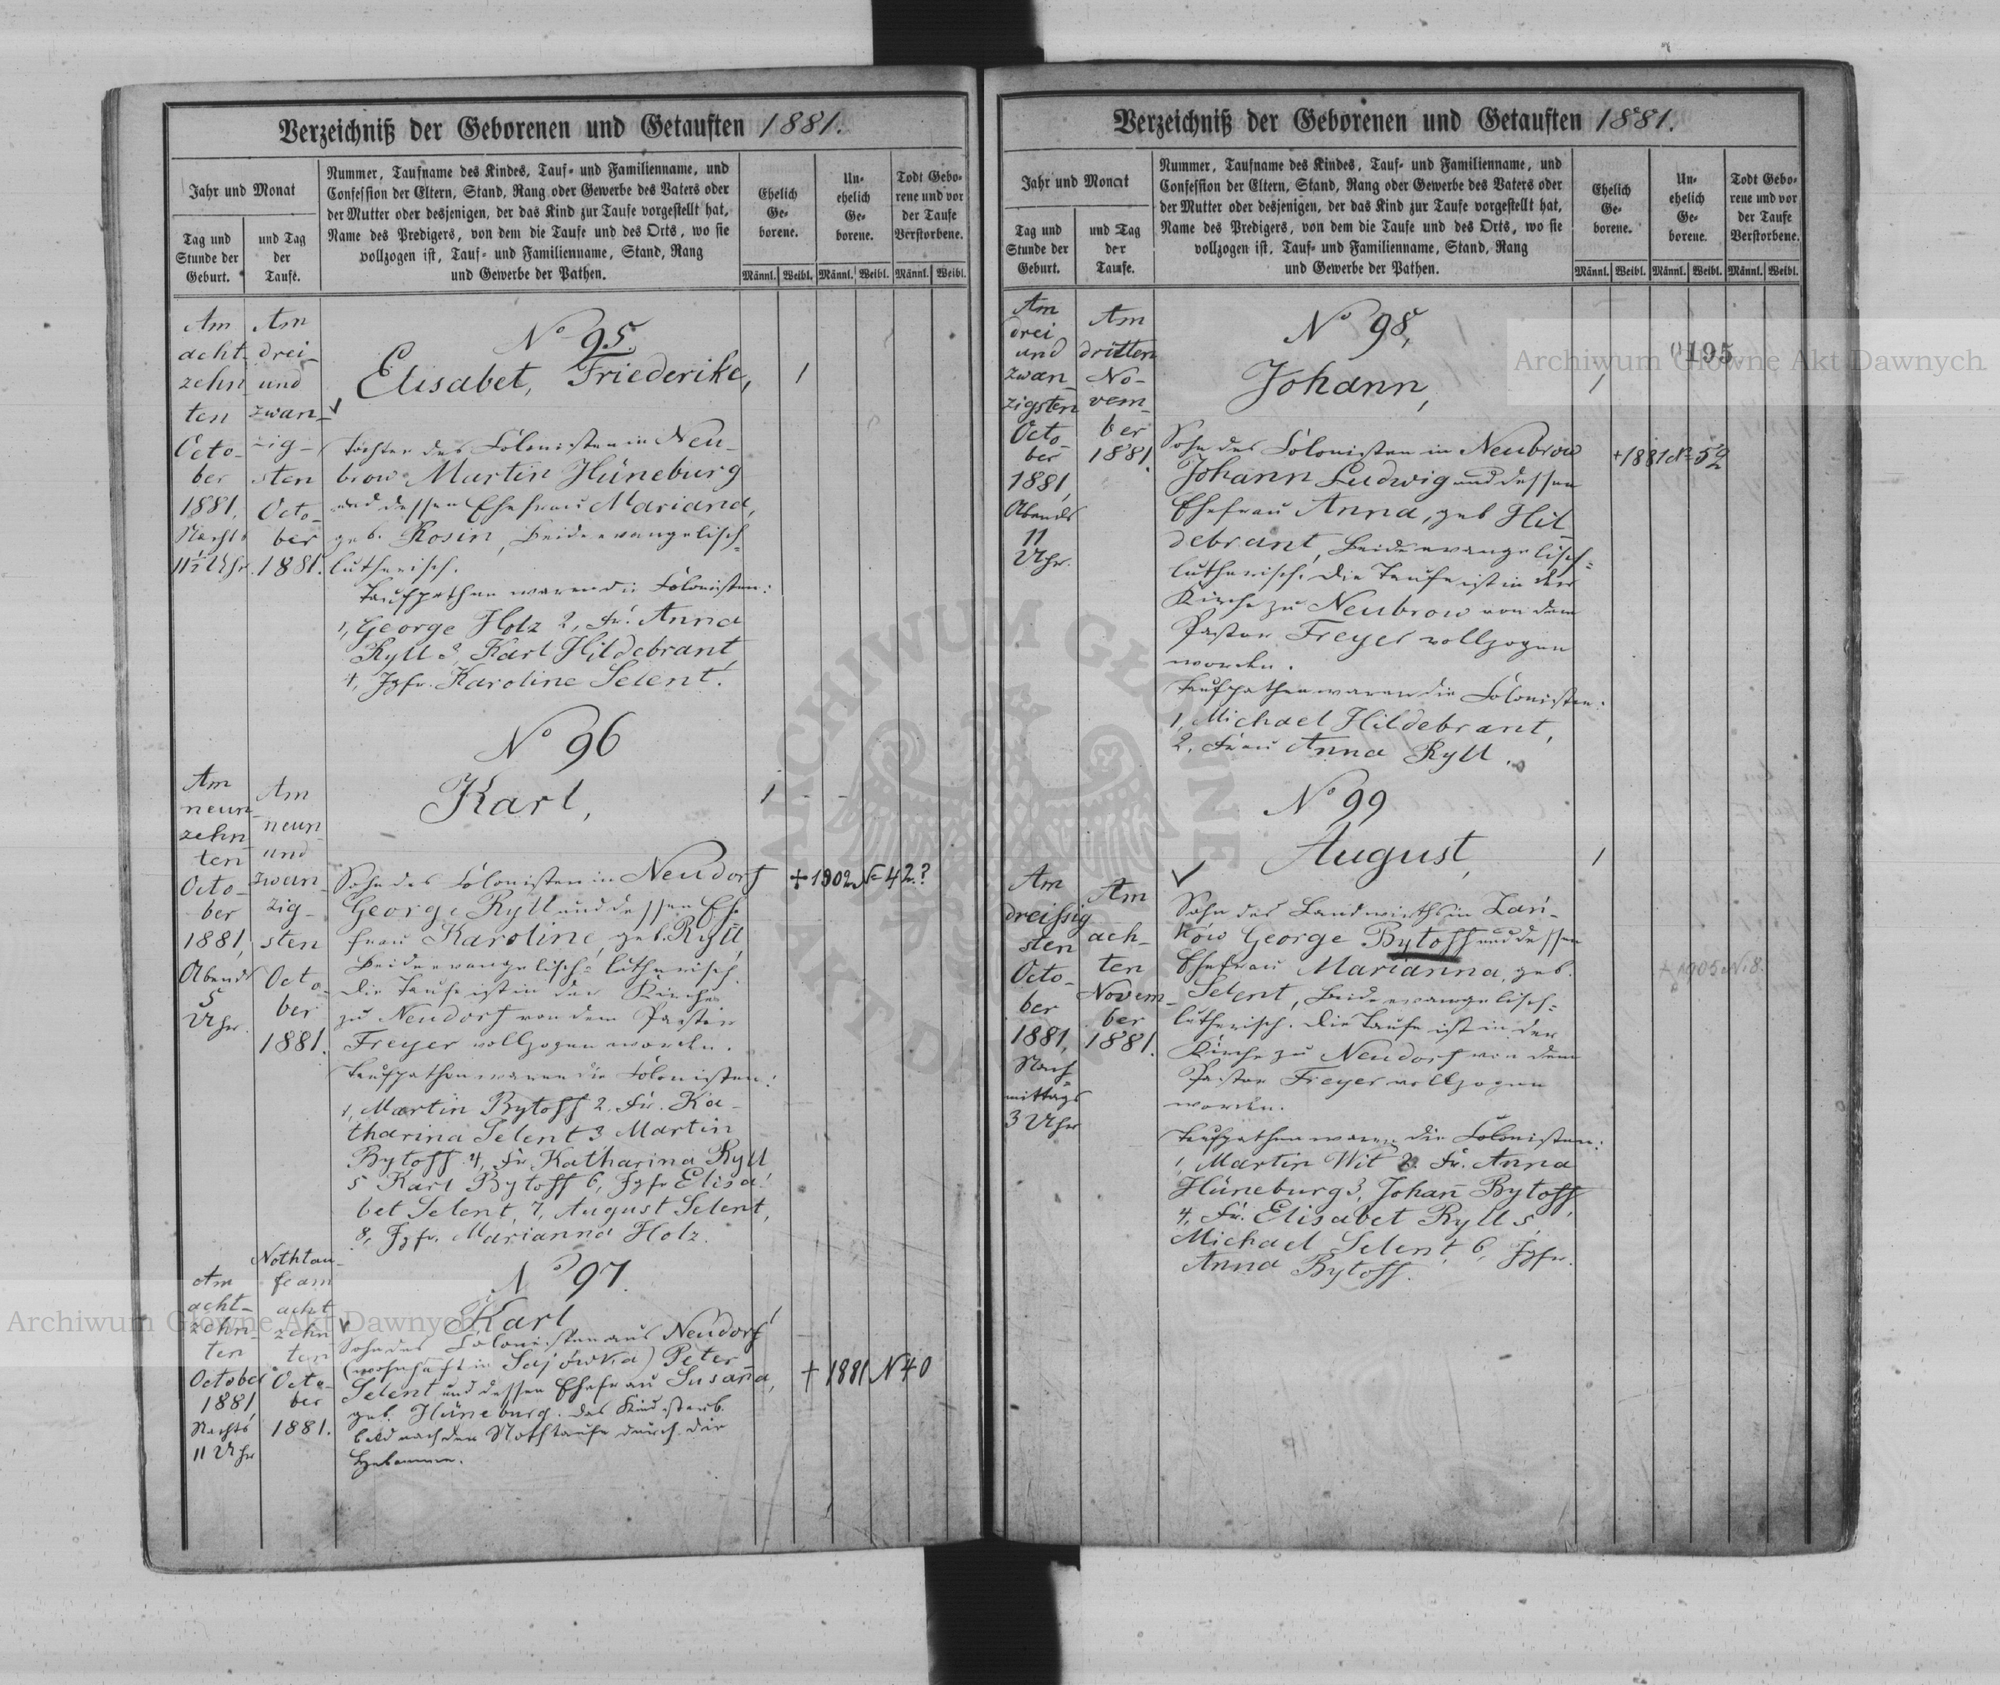 Verzeichniß der Geborenen und Getauften 1881.
Jahr und Monat
Tag und
Stunde der
Geburt.
und Tag
der
Taufe.
Nummer, Taufname des Kindes, Tauf- und Familienname, und
Confession der Eltern, Stand, Rang oder Gewerbe des Vaters oder
der Mutter oder desjenigen, der das Kind zur Taufe vorgestellt hat,
Name des Predigers, von dem die Taufe und des Orts, wo sie
vollzogen ist, Tauf- und Familienname, Stand, Rang
und Gewerbe der Pathen.
Ehelich
Ge-
borene.
Un-
ehelich
Ge-
borene.
Todt Gebo-
rene und vor
der Taufe
Verstorbene.
Männl. Weibl. Männl. Weibl. Männl. Weibl.
Am
acht-
zehn
ten
Octo-
ber
1881,
Nachts
11½ Uhr.
Am
drei-
und
zwan-
zig-
sten
Octo-
ber
1881.
No 95.
Elisabet, Friederike,
1
Tochter des Colonisten in Neu-
brow Martin Hüneburg
und dessen Ehefrau Mariana,
geb. Rosin, Beide evangelisch-
lutherisch.
Taufpathen waren die Colonisten:
1, George Holz 2, Fr. Anna
Ryll 3, Karl Hildebrant,
4, Jgfr. Karoline Selent.
Am
neun
zehn-
ten
Octo-
ber
1881,
Abends
5
Uhr.
Am
neun
und
zwan-
zig-
sten
Octo-
ber
1881.
No 96
Karl,
1 - -
Sohn des Colonisten in Neudorf
George Ryll und dessen Ehe-
frau Karoline, geb. Ryll,
Beide evangelisch-lutherisch.
Die Taufe ist in der Kirche
zu Neudorf von dem Pastor
Freyer vollzogen worden.
Taufpathen waren die Colonisten:
1, Martin Bytoff 2. Fr. Ka-
tharina Selent 3 Martin
Bytoff 4, Fr. Katharina Ryll
5 Karl Bytoff 6, Jgfr Elisa-
bet Selent, 7, August Selent,
8, Jgfr. Marianna Holz.
+ 1902 N 42?
Am
acht-
zehn-
ten
October
1881,
Nachts
11 Uhr
Nothtau-
fe am
acht
zehn
ten
Octo-
ber
1881.
No 97.
Karl
Sohn des Colonisten aus Neudorf
(wohnhaft in Sajówka) Peter
Selent und dessen Ehefrau Susana,
geb. Hüneburg. Das Kind starb
bald nach der Nothtaufe durch die
Hebamme.
+ 1881 N 40
Verzeichniß der Geborenen und Getauften 1881.
Jahr und Monat
Tag und
Stunde der
Geburt.
und Tag
der
Taufe.
Nummer, Taufname des Kindes, Tauf- und Familienname, und
Confession der Eltern, Stand, Rang oder Gewerbe des Vaters oder
der Mutter oder desjenigen, der das Kind zur Taufe vorgestellt hat,
Name des Predigers, von dem die Taufe und des Orts, wo sie
vollzogen ist, Tauf- und Familienname, Stand, Rang
und Gewerbe der Pathen.
Ehelich
Ge-
borene.
Un-
ehelich
Ge-
borene.
Todt Gebo-
rene und vor
der Taufe
Verstorbene.
Männl. Weibl. Männl. Weibl. Männl. Weibl.
Am
drei
und
zwan-
zigsten
Octo-
ber
1881,
Abends
11
Uhr.
Am
dritten
No-
vem-
ber
1881.
No 98,
Johann,
1
195
Sohn des Colonisten in Neubrow
Johann Ludwig und dessen
Ehefrau Anna, geb Hil-
debrant, Beide evangelisch-
lutherisch. Die Taufe ist in der
Kirche zu Neubrow von dem
Pastor Freyer vollzogen
worden.
Taufpathen waren die Colonisten:
1, Michael Hildebrant,
2, Frau Anna Ryll.
+ 1881 No 52
Am
dreissig
sten
Octo-
ber
1881,
Nach
mittags
3 Uhr
Am
ach-
ten
Novem-
ber
1881.
No 99
August,
1
Sohn des Landwirths in
George Bytoff und dessen
Ehefrau Marianna, geb.
Selent, Beide evangelisch-
lutherisch. Die Taufe ist in der
Kirche zu Neudorf von dem
Pastor Freyer vollzogen
worden.
Taufpathen waren die Colonisten:
1, Martin Wit 2. Fr. Anna
Hüneburg 3, Johan̄ Bytoff,
4, Fr. Elisabet Ryll 5,
Michael Selent, 6, Jgfr.
Anna Bytoff.
+ 1905 N. 8.
Archiwum Główne Akt Dawnych
Archiwum Główne Akt Dawnych
ARCHIWUM GŁÓWNE AKT DAWNYCH